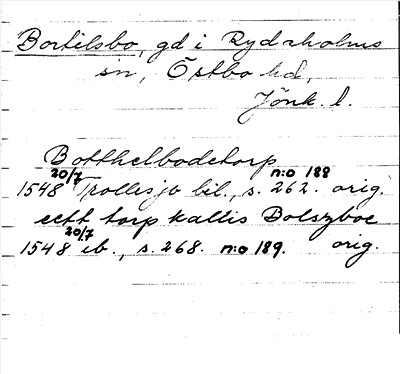 Bortelsbo, gd i Rydaholms
sn, Östbo hd,
Jönk. l.
Botthelbodetorp
20/7 n:o 188
1548 Trollesjö bil., s. 262. orig.
eett torp kallis Bolszboe
20/7
1548 ib., s. 268. n:o 189. orig.